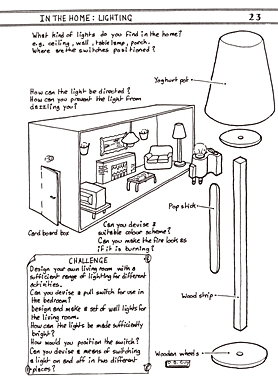 IN THE HOME: LIGHTING 23
What kind of lights do you find in the home?
e.g. ceiling, wall, table lamp, porch.
Where are the switches positioned?
Yoghurt pot
How can the light be directed?
How can you prevent the light from
dazzling you?
Pop stick
Card board box
Can you devise a
suitable colour scheme?
Can you make the fire look as
if it is burning?
CHALLENGE
Design your own living room with a
sufficient range of lighting for different
activities.
Can you devise a pull switch for use in
the bedroom?
Design and make a set of wall lights for
the living room.
How can the lights be made sufficiently
bright?
How would you position the switch?
Can you devise a means of switching
a light on and off in two different
places?
Wood strip
Wooden wheels